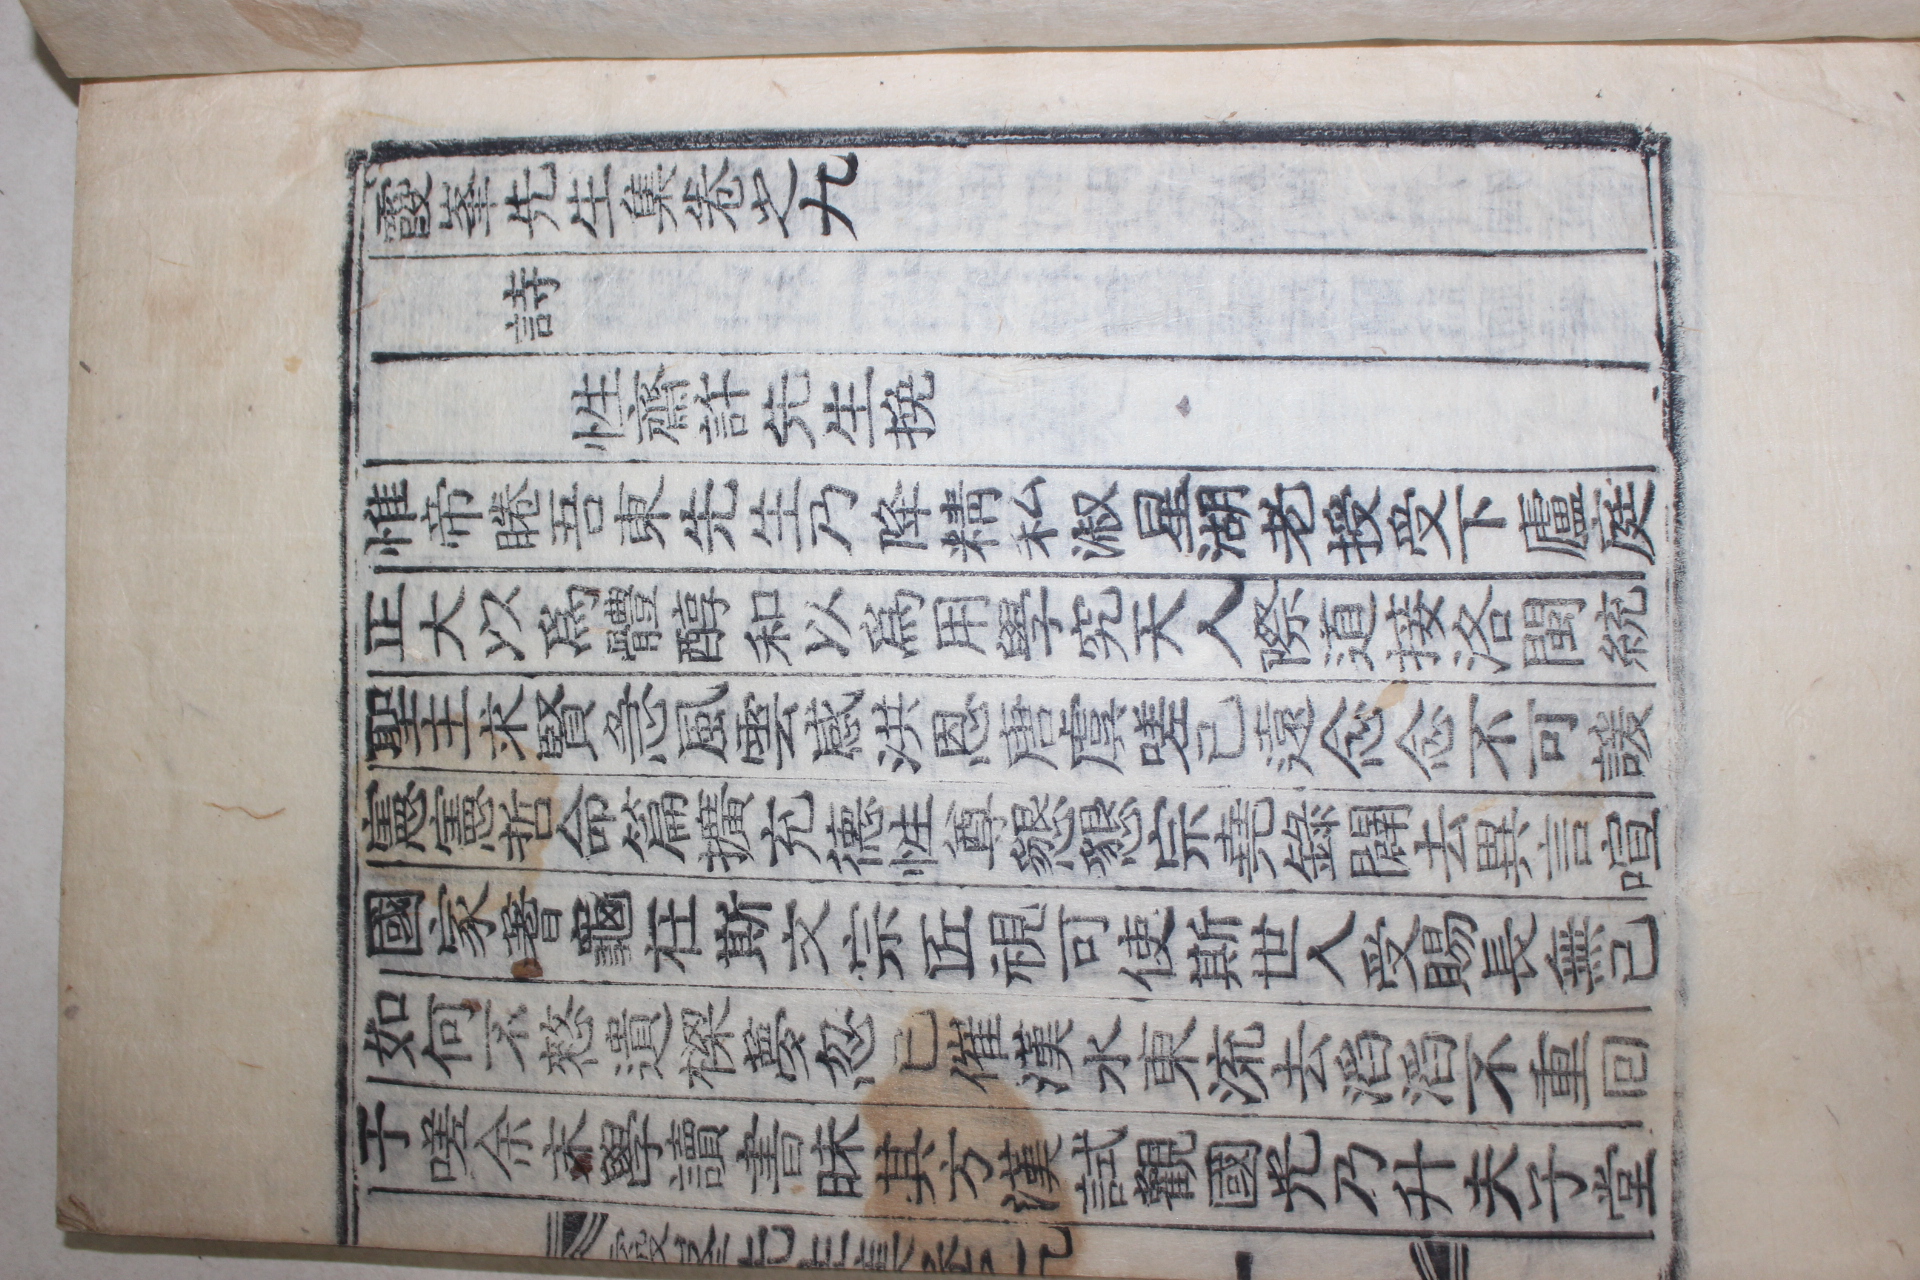 霞峯先生集卷之九
詩
性齋許先生挽
惟帝睠吾東先生乃降精私淑星湖老授受下廬庭
正大以爲體醇和以爲用學究天人際道接洛閩統
聖主求賢急風雲感洪恩唐虞嗟已遠念念不可諼
憲憲哲命篇擴充德性尊懇懇宗堯錄闢去異言喧
國家蓍龜在斯文宗匠視可使斯世人受賜長無已
如何不憖遺樑夢忽已催漢水東流去滔滔不重回
于嗟余末學讀書昧其方漢試觀國光乃升夫子堂
霞峯先生集卷之九
一